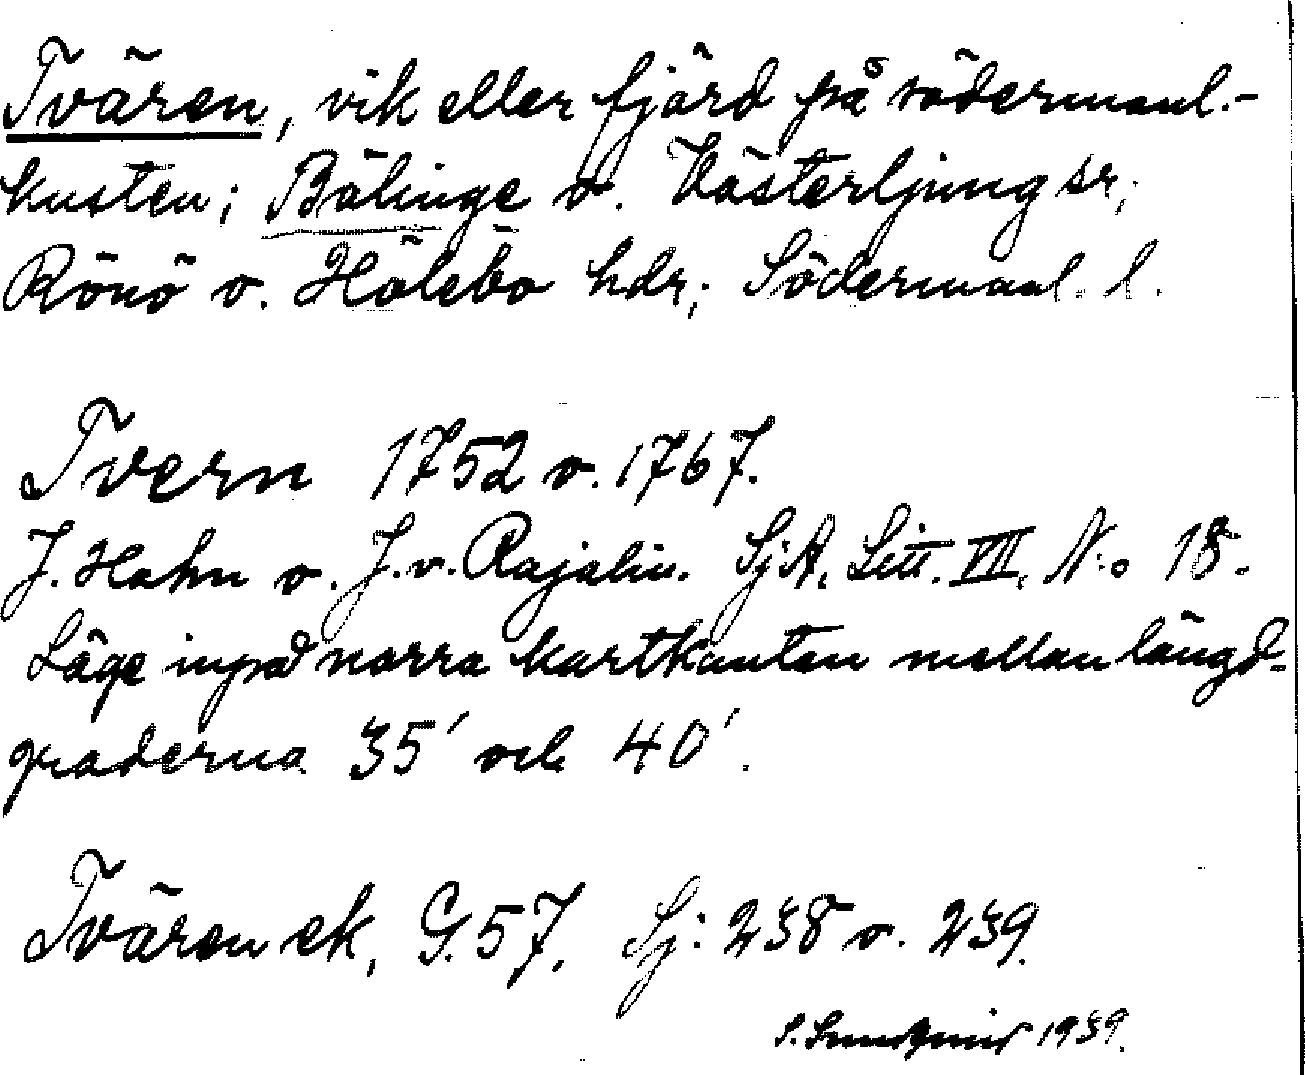 Tvären, vik eller fjärd på södermanl.-
kusten; Bälinge o. Västerljung sr,
Rönö o. Hölebo hdr; Södermanl. l.
Tvern 1752 o. 1767.
J. Hahn o. J. v. Rajalin. SjA, Litt. VII, N:o 18.
Läge inpå norra kartkanten mellan längd-
graderna 35′ och 40′.
Tvären ek, G.57. Sj: 238 o. 239.
S. 1939.